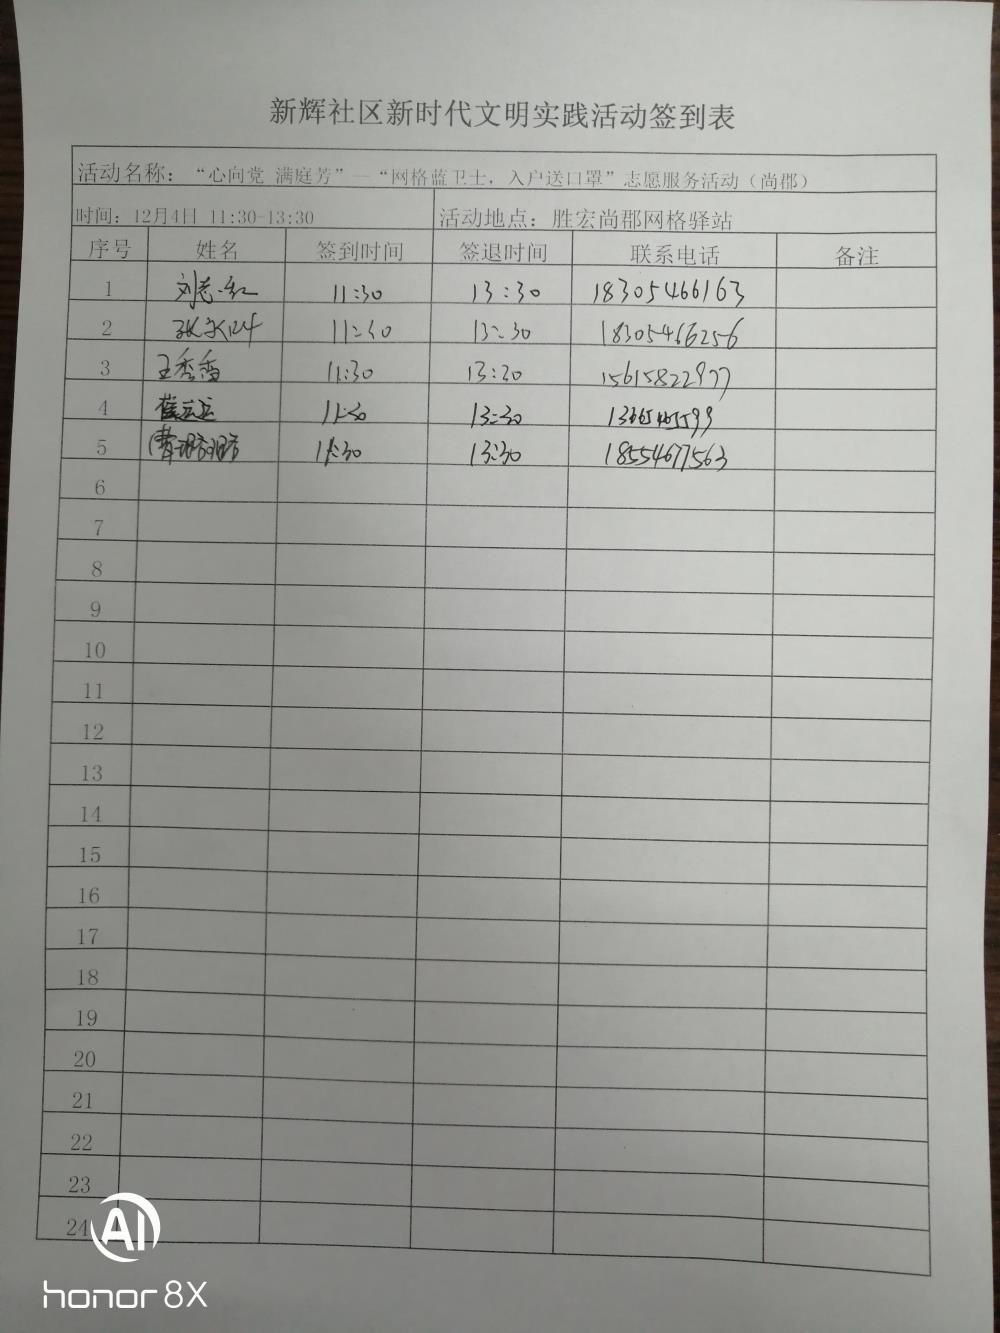 新辉社区新时代文明实践活动签到表
活动名称：“心向党 满庭芳”—“网格蓝卫士，入户送口罩”志愿服务活动（尚郡）
时间：12月4日 11:30-13:30 活动地点：胜宏尚郡网格驿站
序号 姓名 签到时间 签退时间 联系电话 备注
1 刘志红 11:30 13:30 18305466163
2 11:30 13:30 18305466256
3 王秀香 11:30 13:30 15615822977
4 11:30 13:30
5 11:30 13:30 18554677563
6
7
8
9
10
11
12
13
14
15
16
17
18
19
20
21
22
23
24
AI
honor 8X